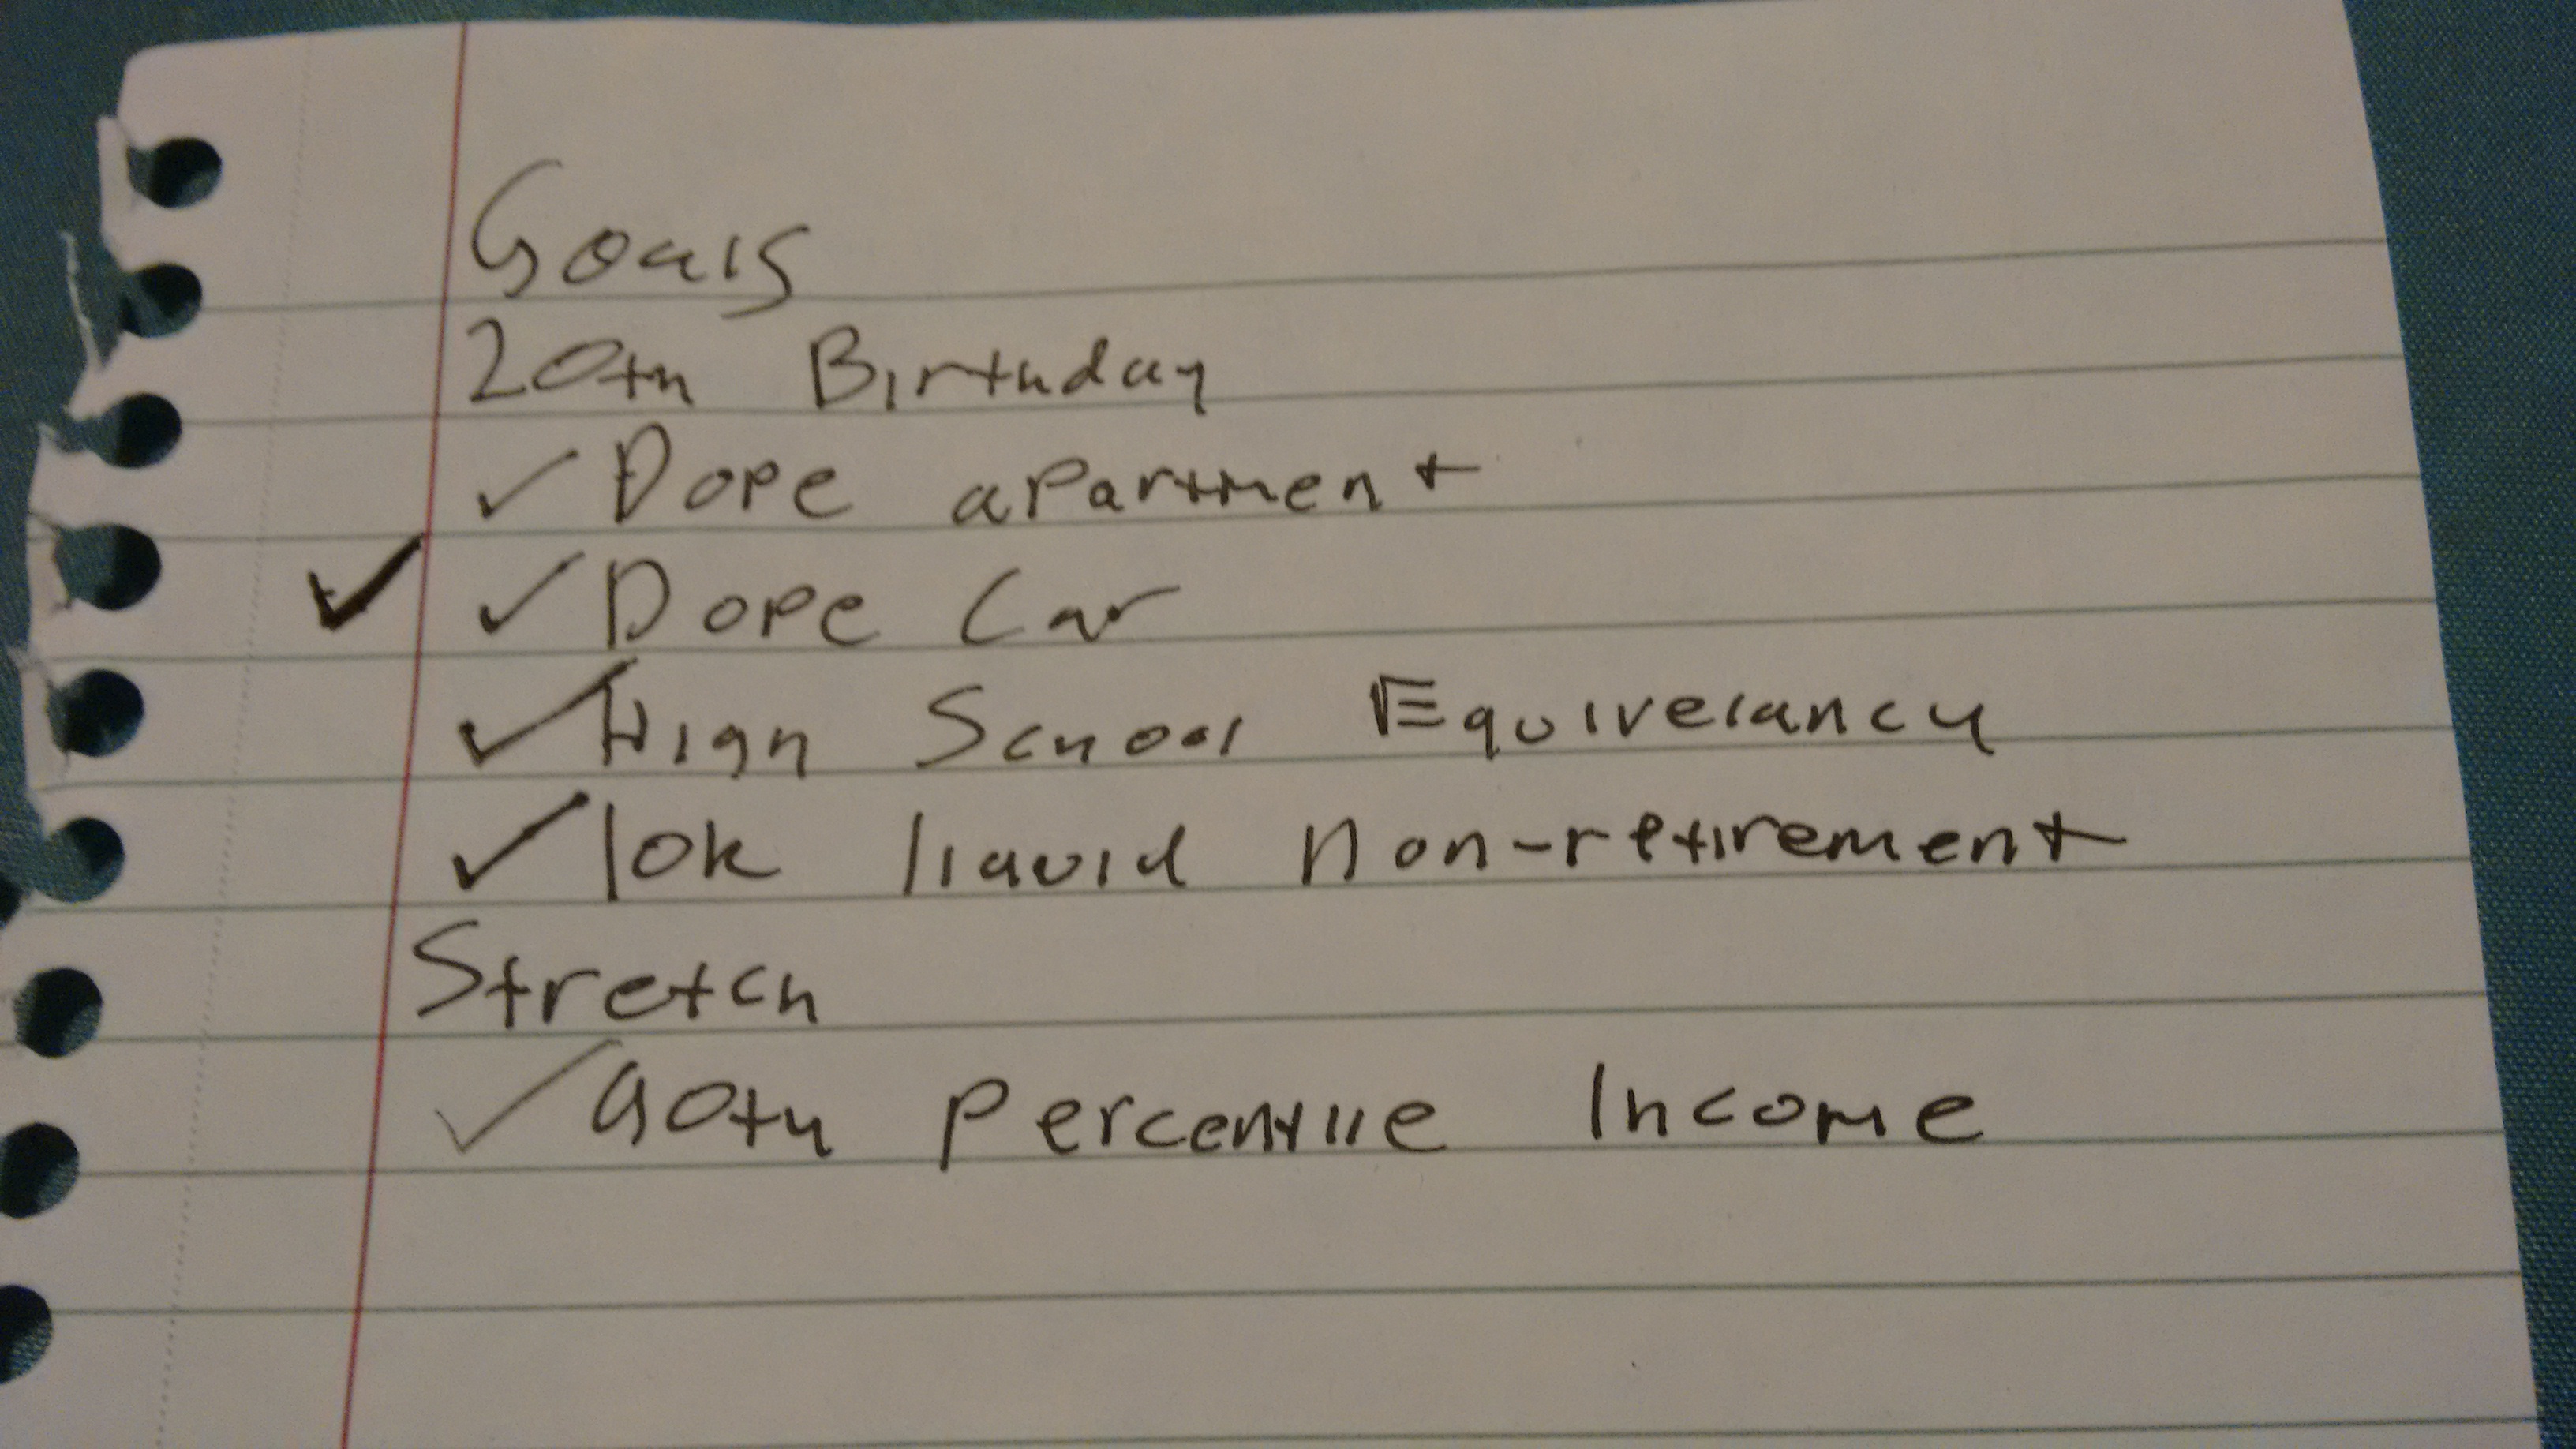 Goals
20th Birthday
✓ Dope apartment
✓ ✓ Dope Car
✓ High School Equivelancy
✓ 10k liquid non-retirement
Stretch
✓ 90th percentile Income